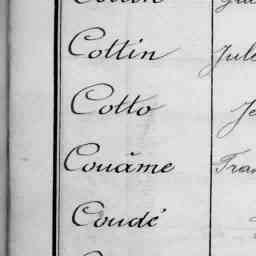 Cottin Jule
Cotto Je
Couäme Fran
Coudé